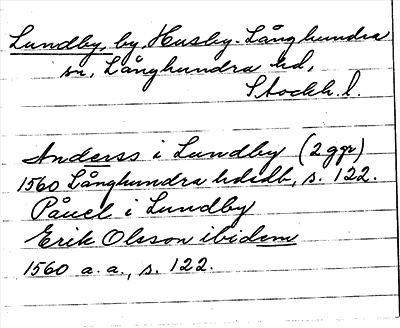 Lundby, by Husby-Långhundra
sn, Långhundra hd,
Stockh. l.
Anderss i Lundby (2 ggr)
1560 Långhundra hdrdb, s. 122.
Påuel i Lundby
Erik Olsson ibidem
1560 a. a., s. 122.